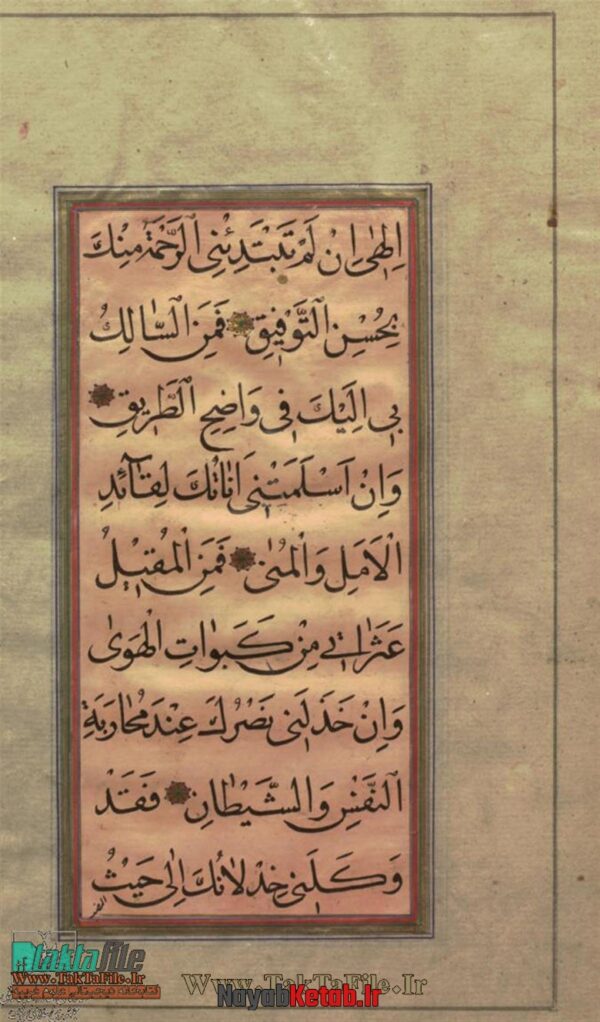 اِلٰهى اِنْ لَمْ تَبْتَدِئْنِى الرَّحْمَةُ مِنْكَ
بِحُسْنِ التَّوْفيقِ فَمَنِ السّٰالِكُ
بى اِلَيْكَ فى وٰاضِحِ الطَّريقِ
وَاِنْ اَسْلَمَتْنى اَنٰاتُكَ لِقٰآئِدِ
الْاَمَلِ وَالْمُنٰى فَمَنِ الْمُقيلُ
عَثَرٰاتى مِنْ كَبَوٰاتِ الْهَوٰى
وَاِنْ خَذَلَنى نَصْرُكَ عِنْدَ مُحٰارَبَةِ
النَّفْسِ وَالشَّيْطٰانِ فَقَدْ
وَكَلَنى خِذْلٰانُكَ اِلٰى حَيْثُ
النصب
taktafile
Www.TakTaFile.Ir
Www.TakTaFile.Ir
NayabKetab.Ir